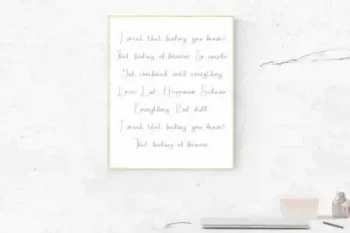 I want that feeling you know?
That feeling of because. So simple
Yet combined with everything
Love. Lust. Happiness. Sadness
Everything. But still.
I want that feeling you know?
That feeling of because.